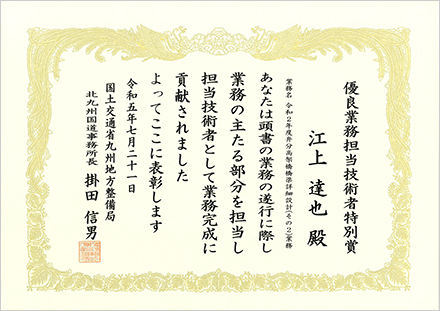 優良業務担当技術者特別賞
江上 達也 殿
業務名 令和2年度弁分高架橋橋梁詳細設計(その2)業務
あなたは頭書の業務の遂行に際し
業務の主たる部分を担当し
担当技術者として業務完成に
貢献されました
よってここに表彰します
令和五年七月二十一日
国土交通省九州地方整備局
北九州国道事務所長 掛田 信男